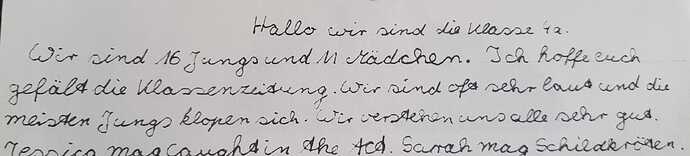 Hallo wir sind die Klasse 4a.
Wir sind 16 Jungs und 11 Mädchen. Ich hoffe euch
gefält die Klassenzeitung. Wir sind oft sehr laut und die
meisten Jungs klopen sich. Wir verstehen uns alle sehr gut.
Jessica mag Caught in the Act. Sarah mag Schildkröten.